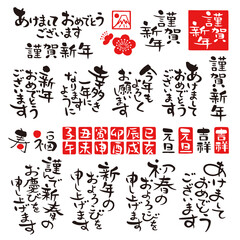 あけまして おめでとう
ございます
謹賀新年
謹賀
新年
謹賀
新年
新年
あけまして
おめでとう
ございます
幸多き
年に
なります
ように
今年も
よろしく
お願い
します
あけまして
おめでとう
ございます
春
福
子丑寅卯辰巳
午未申酉戌亥
元旦
元旦
吉祥
吉祥
謹んで
新春の
お慶びを
申し上げます
新年の
およろこびを
申し上げます
初春の
およろこびを
申し上げます
あけまして
おめでとう
ございます